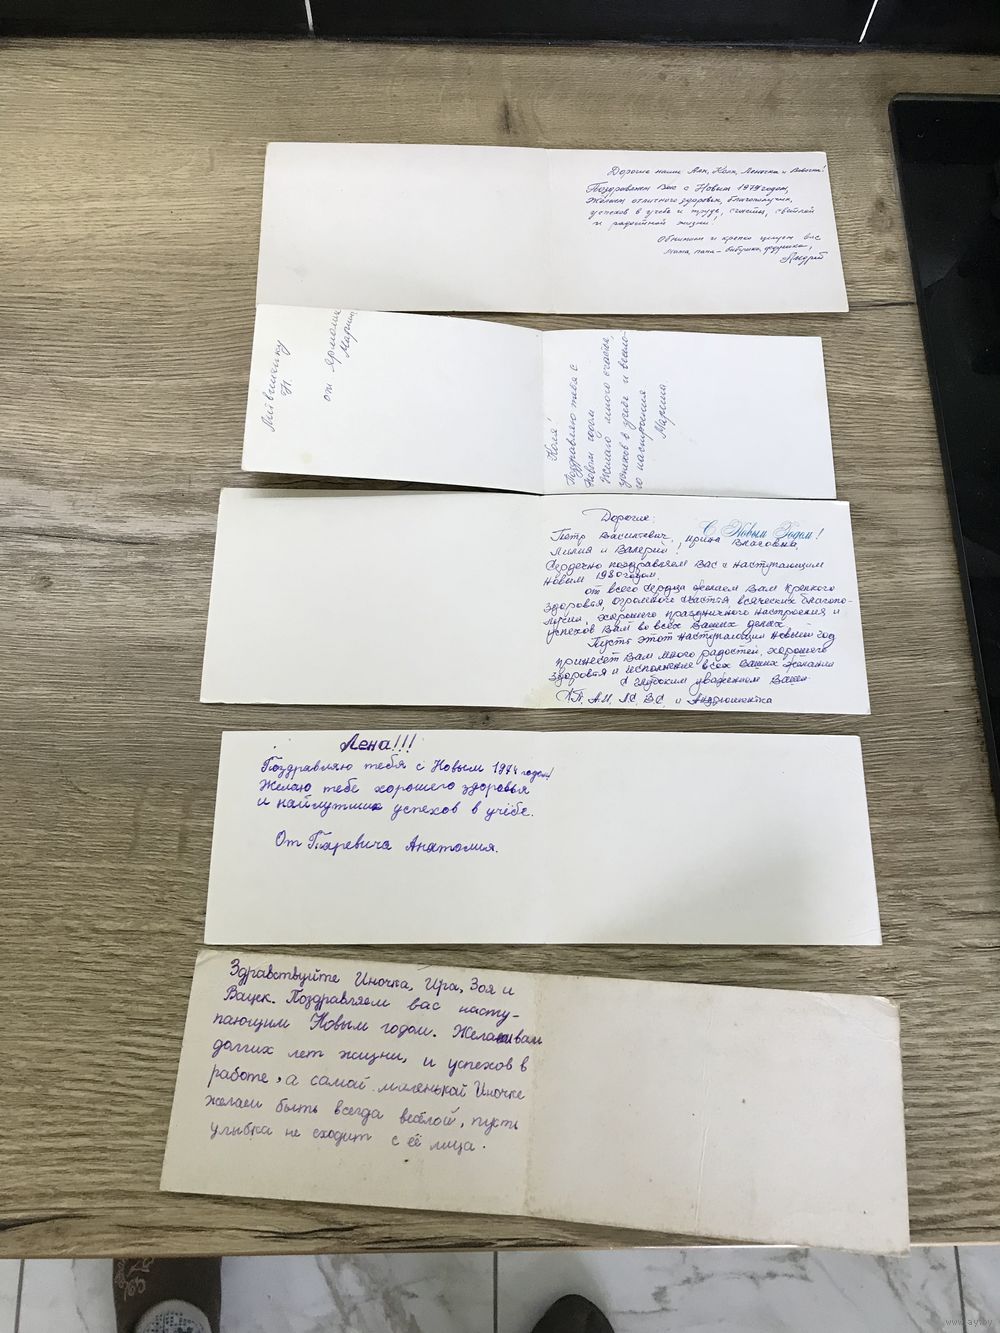 Дорогие наши Аня, Коля, Леночка и Вовочка!
Поздравляем Вас с Новым 1979 годом,
Желаем отличного здоровья, благополучия,
успехов в учебе и труде, счастья, светлой
и радостной жизни!
Обнимаем и крепко целуем вас
мама, папа - бабушка, дедушка,
Андрей
Литвиненку
Н.
от Ярмолик
Марины
Коля!
Поздравляю тебя с
Новым годом
Желаю много счастья,
успехов в учёбе и весело-
го настроения
Марина.
С Новым Годом!
Дорогие:
Петр Васильевич, Ирина
Лилия и Валерий!
Сердечно поздравляем Вас с наступающим
Новым 1980 годом.
от всего сердца желаем Вам крепкого
здоровья, огромного счастья всяческих благопо-
лучий, хорошего праздничного настроения и
успехов Вам во всех Ваших делах.
Пусть этот наступающий новый год
принесёт Вам много радостей, хорошего
здоровья и исполнение всех Ваших желаний
С глубоким уважением Ваши
А.И, Л.С, В.С, и Андрюшенька
Лена!!!
Поздравляю тебя с Новым 1974 годом!
Желаю тебе хорошего здоровья
и найлутших успехов в учёбе.
От Гаревича Анатолия.
Здравствуйте Иночка, Ира, Зоя и
Вацек. Поздравляем вас насту-
пающим Новым годом. Желаем вам
долгих лет жизни, и успехов в
работе, а самой маленькой Иночке
желаем быть всегда весёлой, пусть
улыбка не сходит с её лица.
www.ay.by